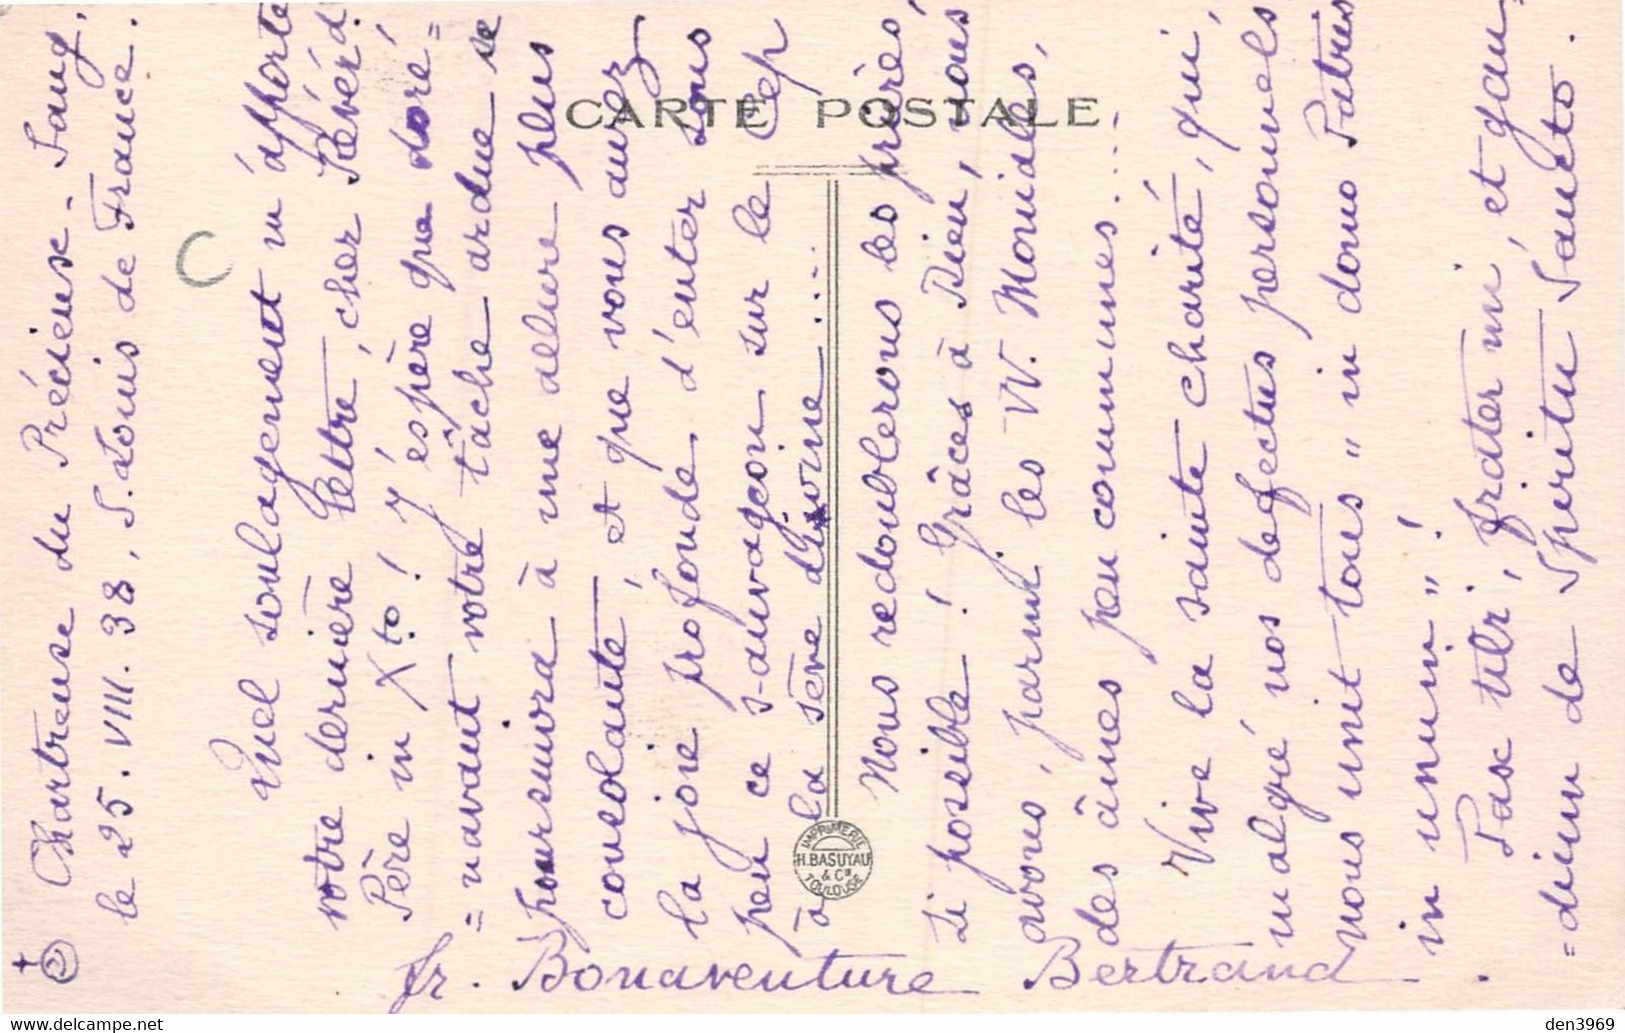 Chartreuse du Précieux-Sang,
le 25. VIII. 38, S. Louis de France.
Quel soulagement m'apporte
votre dernière lettre, cher Révérd
Père in Xto! J'espère que doré=
=navant votre tâche ardue se
poursuivra à une allure plus
consolante, et que vous aurez
la joie profonde d'enter sous
peu ce sauvageon sur le Cep
à la sève divine....
Nous redoublerons les prières,
si possible! Grâces à Dieu, nous
avons, parmi les VV. Moniales,
des âmes peu communes....
Vive la sainte charité, qui,
malgré nos defectus personnels
nous unit tous "in domo Patris
in unum"!
Pax tibi, frater mi, et gau=
=dium de Spiritu Sancto.
fr. Bonaventure Bertrand
CARTE POSTALE
IMPRIMERIE
H. BASUYAU
& Cie
TOULOUSE
den3969